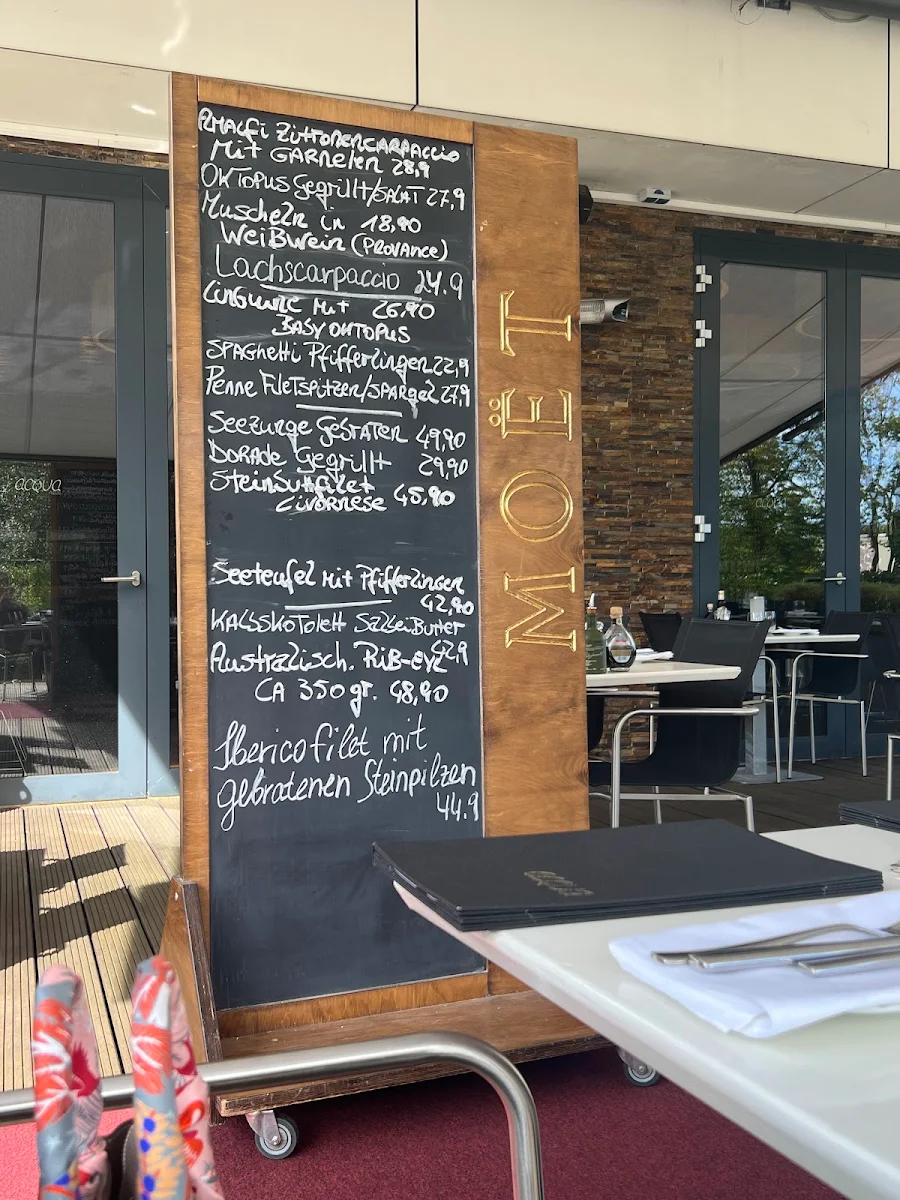 AMALFI ZITRONENCARPACCIO
MIT GARNELEN 28,9
OKTOPUS Gegrillt/SALAT 27,9
Muscheln in 18,90
WEIßWEIN (PROVANCE)
Lachscarpaccio 24.9
LINGUINE MIT 26,90
BABY OKTOPUS
SPAGHETTI Pfifferlingen 22,9
Penne FILETSPITZEN/SPARGEL 27,9
SEEZUNGE GEBRATEN 49,90
DORADE Gegrillt 29,90
STEINBUTTFILET
LIVORNESE 45,90
Seeteufel MIT Pfifferlingen
42,90
KALBSKOTOLETT SALBEIBUTTER
42,9
AUSTRALISCH. RIB-EYE
CA 350 gr. 48,90
Iberico filet mit
gebratenen Steinpilzen
44.9
MOËT
acqua